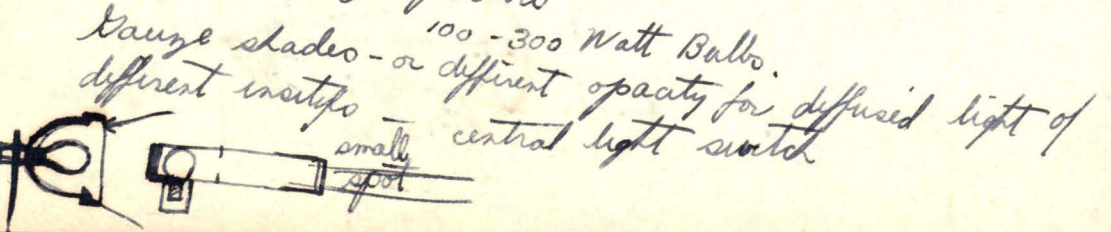 100-300 Watt Bulbs.
Gauze shades - or different opacity for diffused light of
different - central light switch
small
spot